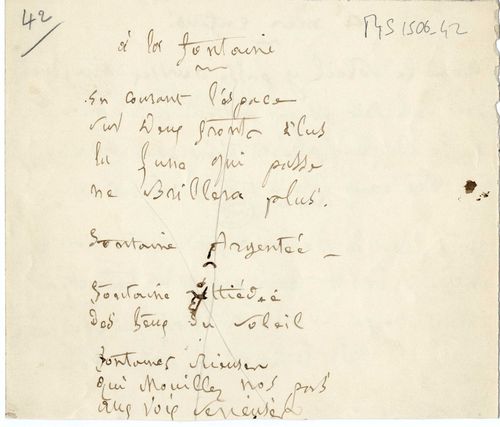 42
MS 1506-42
à la fontaine
En courant l'espace
sur deux fronts élus
la lune qui passe
ne Brillera plus.
Fontaine Argentée
Fontaine
Des feux du soleil
Fontaines Rieuses
qui Mouillez nos pas
aux voix